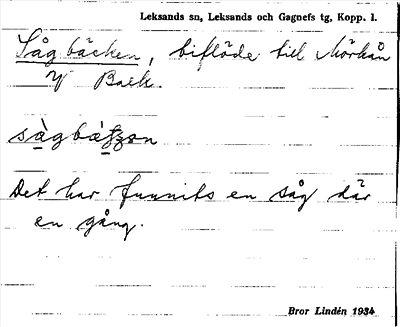 Leksands sn, Leksands och Gagnefs tg, Kopp. l.
Sågbäcken, biflöde till Mörkån
V Back.
Det har funnits en såg där
en gång.
Bror Lindén 1934